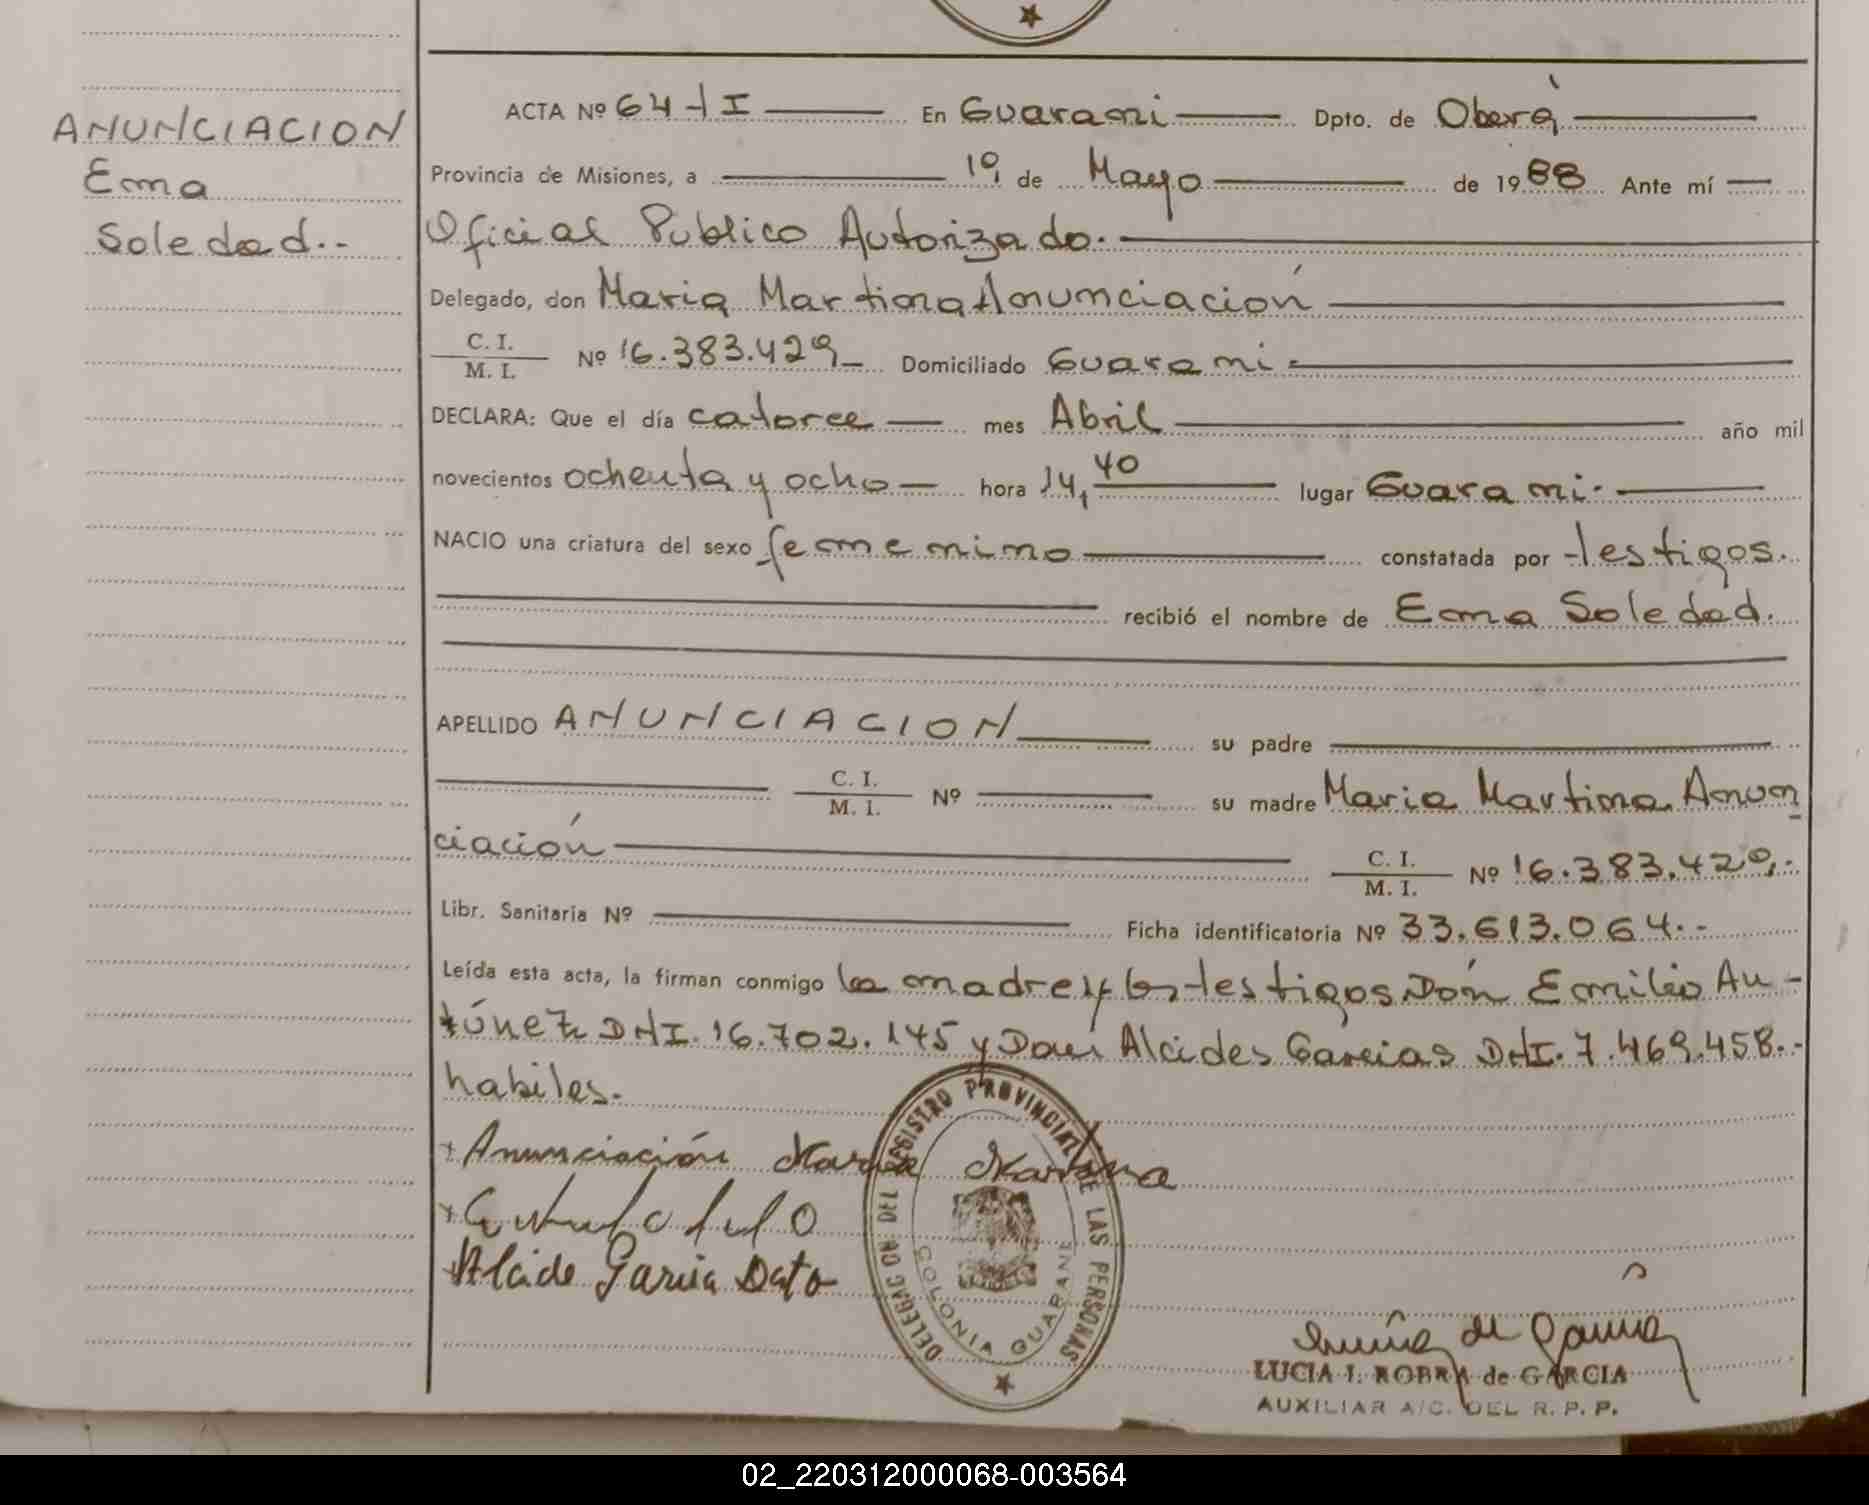 ANUNCIACION
Ema
Soledad.--
ACTA Nº 64-I En Guarani Dpto. de Oberá
Provincia de Misiones, a 19 de Mayo de 1988 Ante mí
Oficial Publico Autorizado.
Delegado, don Maria Martina Anunciación
C. I. / M. I. Nº 16.383.429 Domiciliado Guarani
DECLARA: Que el día catorce mes Abril año mil
novecientos ochenta y ocho hora 14,40 lugar Guarani.
NACIO una criatura del sexo femenino constatada por testigos.
recibió el nombre de Ema Soledad.
APELLIDO ANUNCIACION su padre
C. I. / M. I. Nº su madre Maria Martina Anun
ciación C. I. / M. I. Nº 16.383.429.-
Libr. Sanitaria Nº Ficha identificatoria Nº 33.613.064.-
Leída esta acta, la firman conmigo la madre y los testigos Don Emilio An-
túnez DNI. 16.702.145 y Don Alcides Garcias DNI. 7.469.458.-
habiles.
Anunciación Maria Martina
Alcide Garcia Dato
DELEGACION DEL REGISTRO PROVINCIAL DE LAS PERSONAS
COLONIA GUARANI
LUCIA I. ROBRA de GARCIA
AUXILIAR A/C. DEL R. P. P.
02_220312000068-003564